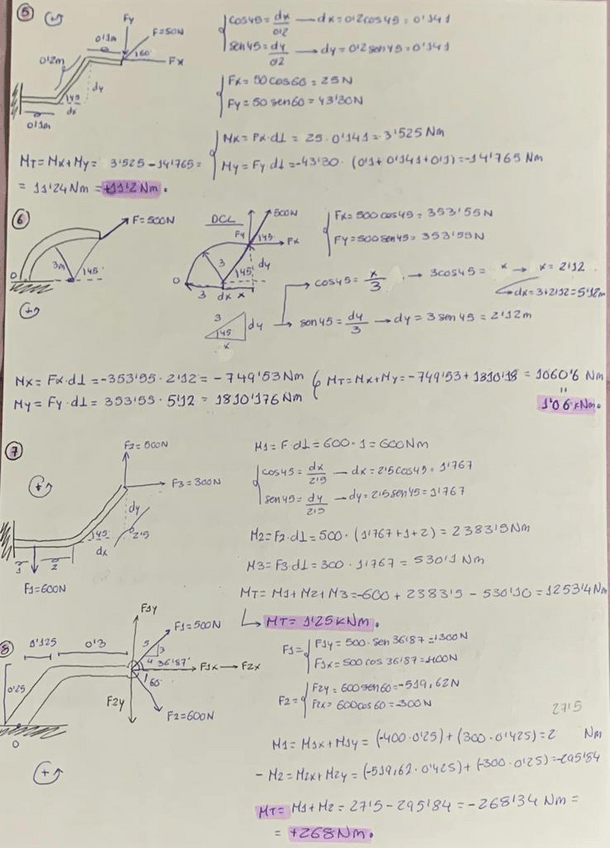 5
Fy
F=50N
0'1m
60°
Fx
0'2m
dy
45
dx
0'1m
cos45 = dx/0'2 → dx = 0'2cos45 = 0'141
sen45 = dy/0'2 → dy = 0'2 sen45 = 0'141
Fx = 50cos60 = 25N
Fy = 50 sen60 = 43'30N
Mx = Fx·d⊥ = 25·0'141 = 3'525 Nm
My = Fy d⊥ = -43'30·(0'1+0'141+0'1) = -14'765 Nm
MT = Mx+My = 3'525 - 14'765 =
= 11'24 Nm = +11'2 Nm.
6
F=500N
3m
45°
O
DCL
500N
Fy
45°
Fx
3
45°
dy
O
3 dx x
Fx = 500cos45 = 353'55N
Fy = 500sen45 = 353'55N
cos45 = x/3 → 3cos45 = x → x = 2'12
dx = 3+2'12 = 5'12m
3
45
dy
x
sen45 = dy/3 → dy = 3 sen45 = 2'12m
Mx = Fx·d⊥ = -353'55·2'12 = -749'53 Nm
My = Fy·d⊥ = 353'55·5'12 = 1810'176 Nm
MT = Mx+My = -749'53 + 1810'18 = 1060'6 Nm
"
1'06 kNm.
7
F2=500N
F3=300N
dy
45
2'5
dx
1
2
F1=600N
M1 = F·d⊥ = 600·1 = 600Nm
cos45 = dx/2'5 → dx = 2'5cos45 = 1'767
sen45 = dy/2'5 → dy = 2'5sen45 = 1'767
M2 = F2·d⊥ = 500·(1'767+1+2) = 2383'5 Nm
M3 = F3·d⊥ = 300·1'767 = 530'1 Nm
MT = M1+M2+M3 = -600 + 2383'5 - 530'10 = 1253'4 Nm
MT = 1'25 kNm.
8
F1y
F1=500N
0'125
0'3
5
3
4
36'87°
F1x → F2x
60°
0'25
F2y
F2=600N
O
F1 =
F1y = 500·sen 36'87 = 300N
F1x = 500 cos 36'87 = 400N
F2 =
F2y = 600 sen60 = -519,62N
F2x = 600cos60 = 300N
27'5
M1 = M1x+M1y = (-400·0'25)+(300·0'425) = 2 Nm
- M2 = M2x+M2y = (-519,62·0'425)+(-300·0'25) = -295'84
MT = M1+M2 = 27'5 - 295'84 = -268'34 Nm =
= +268 Nm.